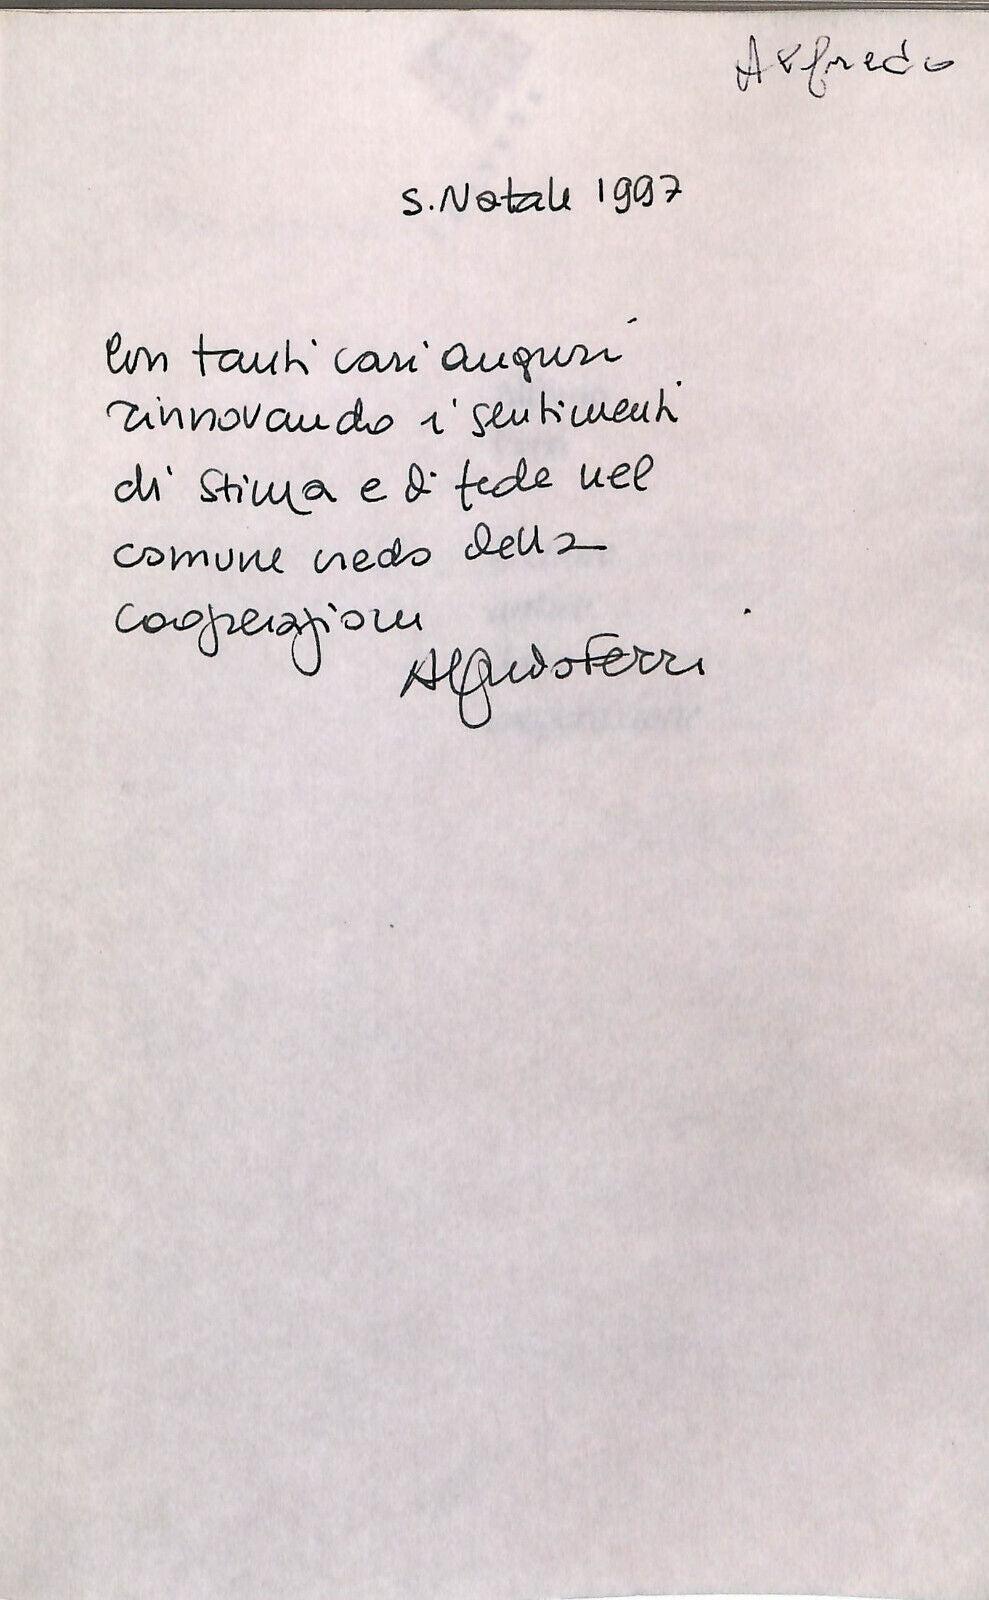 Alfredo
S. Natale 1997
Con tanti cari auguri
rinnovando i sentimenti
di stima e di fede nel
comune credo della
cooperazione
Alfredo Ferri